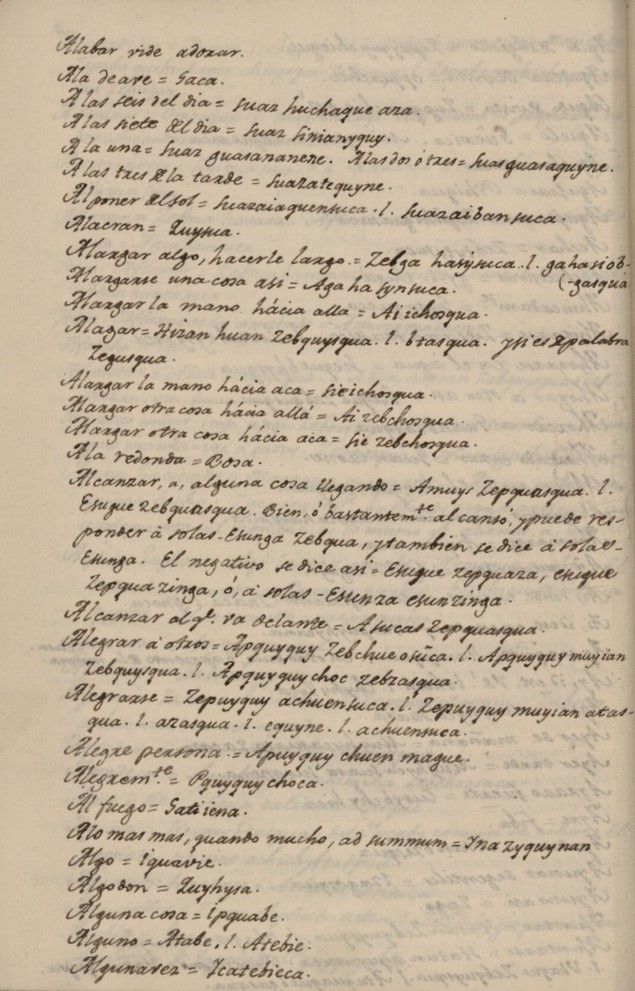 Alabar vide adorar.
Ala de ave = Gaca.
A las seis del dia = suaz huchaque aza.
A las siete del dia = suaz sinianyquy.
A la una = suaz guasananene. A las dos ó tres = suas guasaquyne.
A las tres de la tarde = suazatequyne.
Al poner del sol = suazaiaquensuca. l. suazaibansuca.
Alacran = Zuysua.
Alargar algo, hacerle largo = Zebga hasysuca. l. gahasiob-
(-gasqua
Alargarse una cosa asi = Aga hasynsuca.
Alargar la mano hácia allá = Ai ichosqua.
Alagar = Hizan huan Zebquysqua. l. btasqua. y si es de palabra
Zegusqua.
Alargar la mano hácia aca = sieichosqua.
Alargar otra cosa hácia allá = Ai zebchosqua.
Alargar otra cosa hácia aca = sie zebchosqua.
A la redonda = Bosa.
Alcanzar, a, alguna cosa llegando = Amuys Zepquasqua. l.
Esugue zebquasqua. Bien, ó bastantem.te alcansó, y puede res-
ponder à solas - Esunga Zebqua, y tambien se dice à solas -
Esunga. El negativo se dice asi = Esugue zepquaza, esugue
Zepqua zinga, ó, à solas - Esunza esunzinga.
Alcanzar al q.e va delante = Asucas Zepquasqua.
Alegrar à otros = Apquyquy Zebchueosuca. l. Apquyquy muyian
Zebquysqua. l. Apquyquy choc zebzasqua.
Alegrarse = Zepuyquy achuensuca. l. Zepuyquy muyian atas-
qua. l. azasqua. l. equyne. l. achuensuca.
Alegre persona = Apuyquy chuen mague.
Alegrem.te = Pquyquychoca.
Al fuego = Gatiiena.
Alo mas mas, quando mucho, ad summum = Yna zyquynan
Algo = Iquavie.
Algodon = Zuyhysa.
Alguna cosa = Ipquabe.
Alguno = Atabe. l. Atebie.
Algunavez = Ycatebieca.